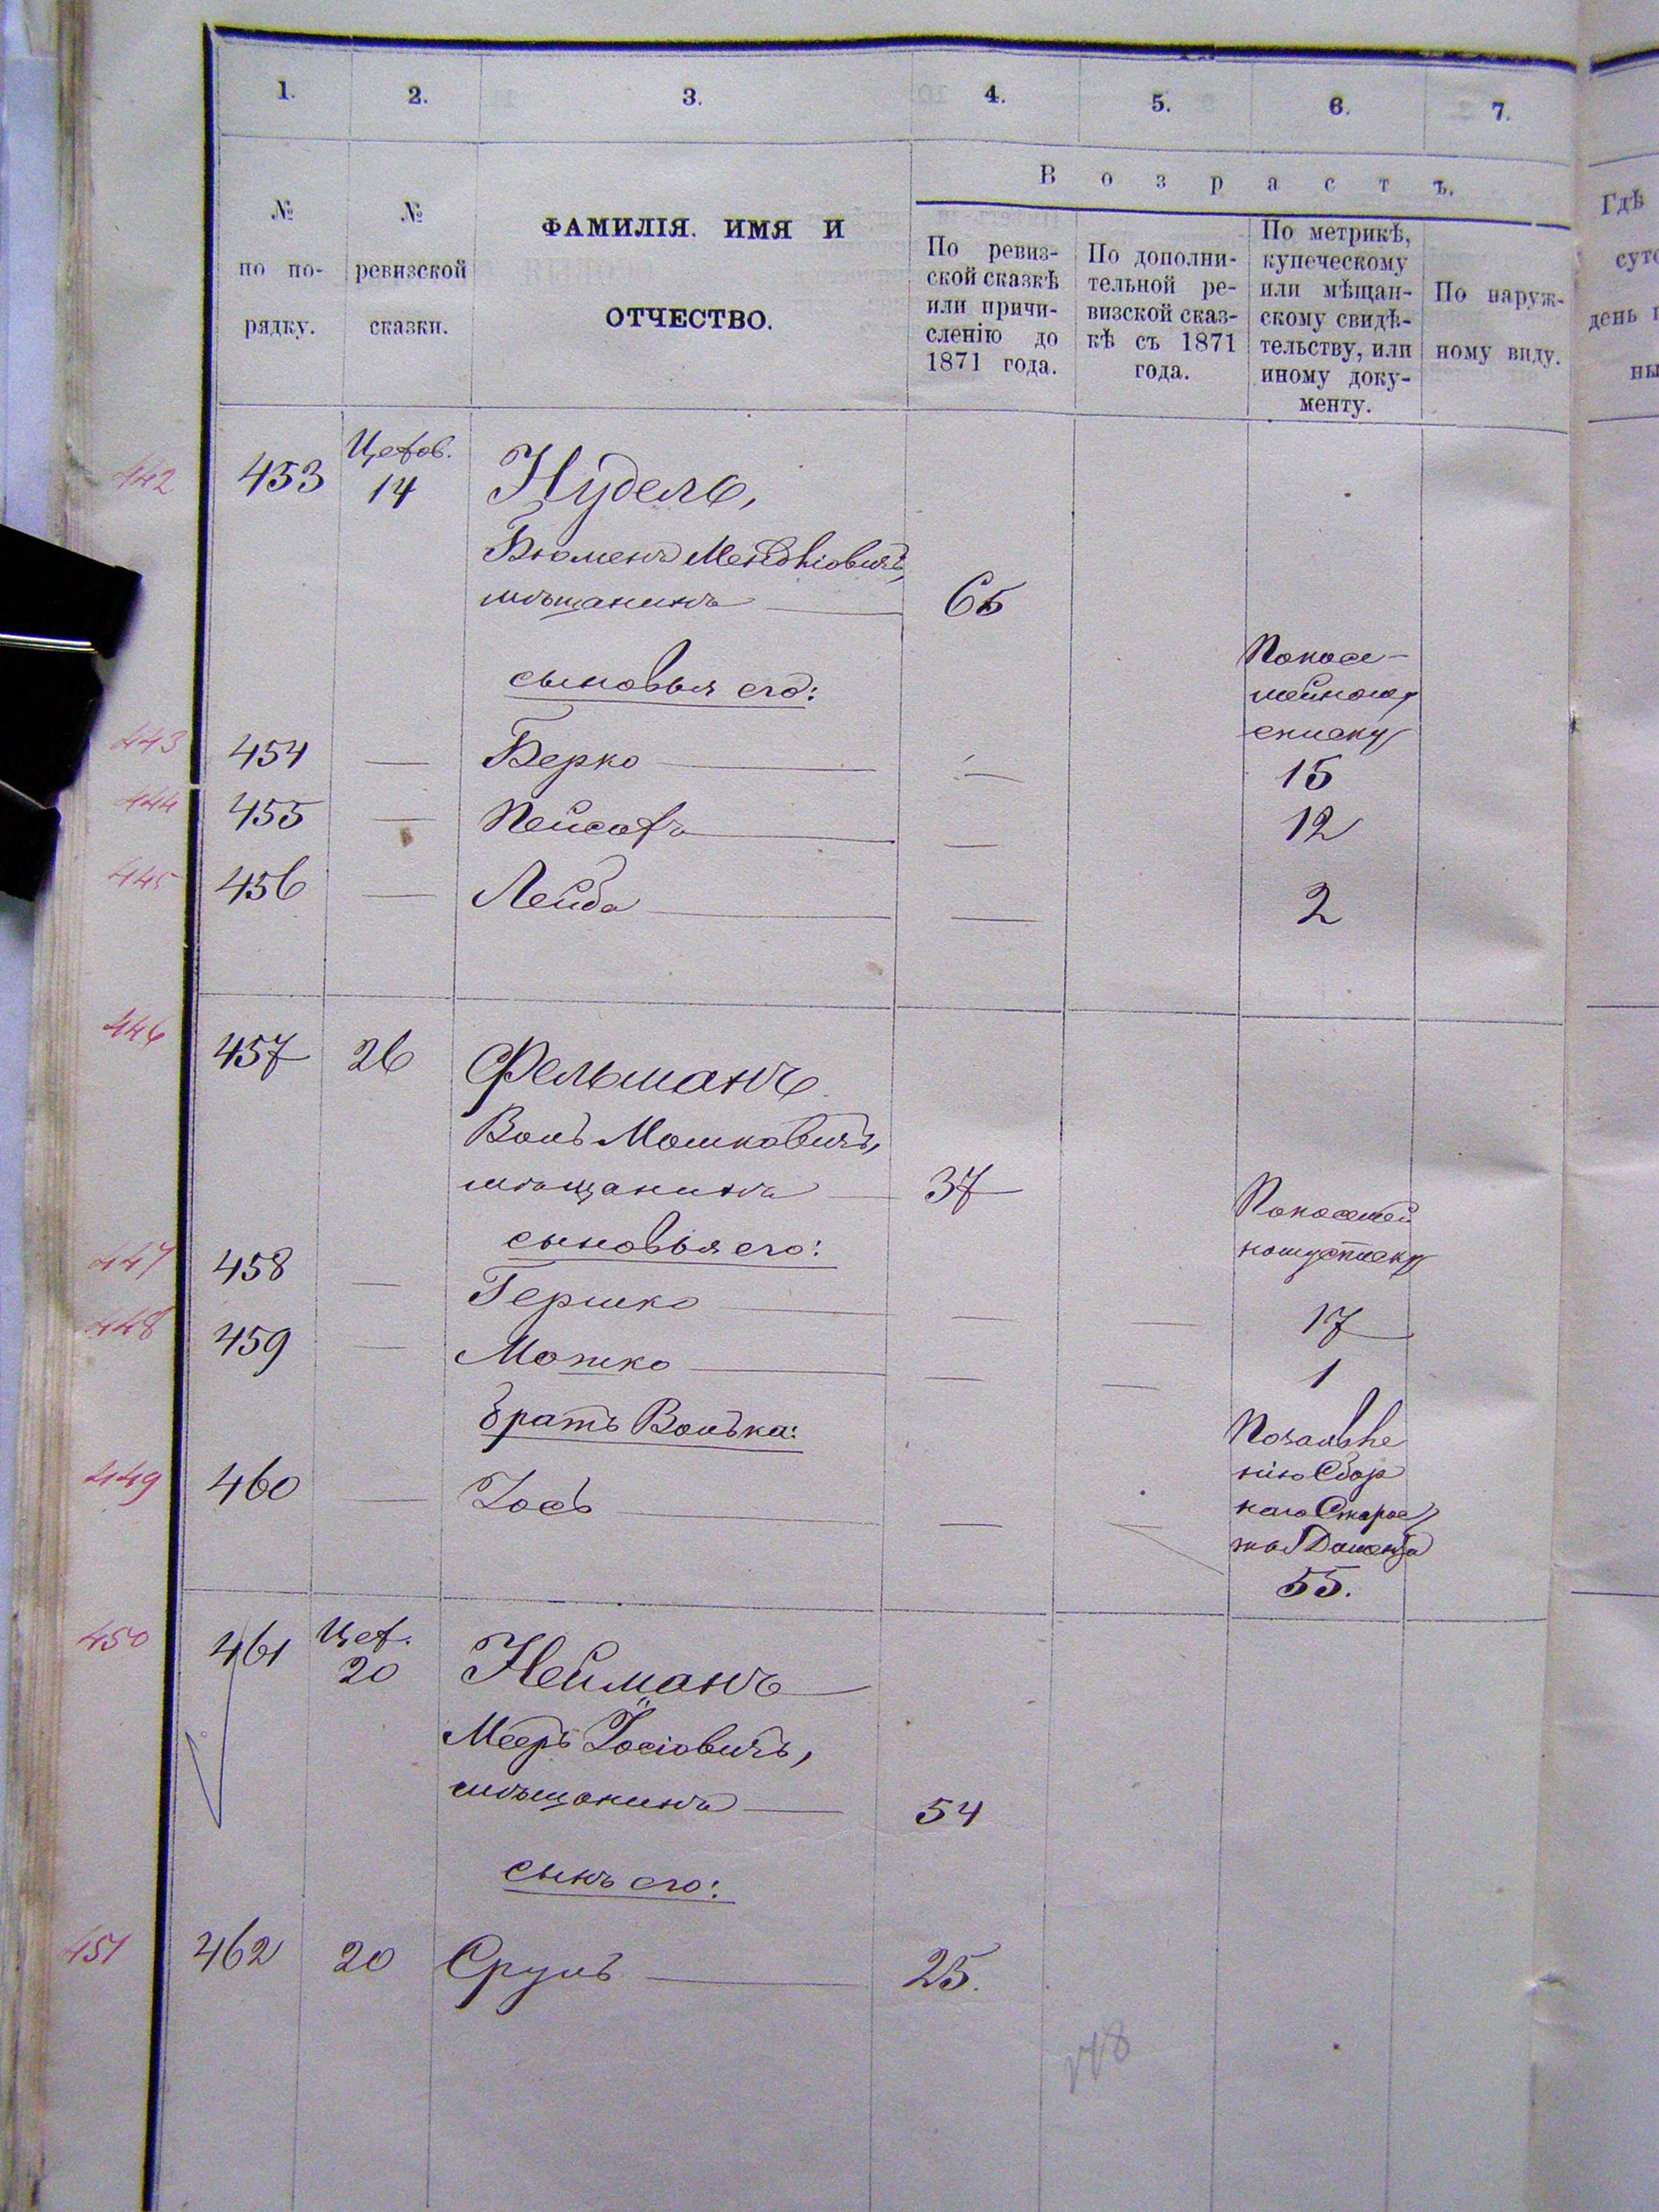 1. 2. 3. 4. 5. 6. 7.
№ по порядку.
№ ревизской сказки.
ФАМИЛІЯ. ИМЯ И
ОТЧЕСТВО.
Возрастъ.
По ревиз-
ской сказкѣ
или причи-
сленію до
1871 года.
По дополни-
тельной ре-
визской сказ-
кѣ съ 1871
года.
По метрикѣ,
купеческому
или мѣщан-
скому свидѣ-
тельству, или
иному доку-
менту.
По наруж-
ному виду.
Гдѣ
день
ны
442 453 14 Нудель,
мѣщанинъ 65
сыновья его:
Попосе-
мейному
списку
443 454 — Берко — — 15
444 455 — Пейсахъ — — 12
445 456 — Лейба — — 2
446 457 26 Фельманъ
Воль Мошковичъ,
мѣщанинъ — 37
сыновья его:
Попосемей
ному списку
447 458 — Гершко — — — 17
448 459 — Мошко — — — 1
братъ Волька:
449 460 — Іось — — —
55.
450 461 Цех. 20 Нейманъ
Мееръ Іосіовичъ,
мѣщанинъ — 54
сынъ его:
451 462 20 Сруль — 25.